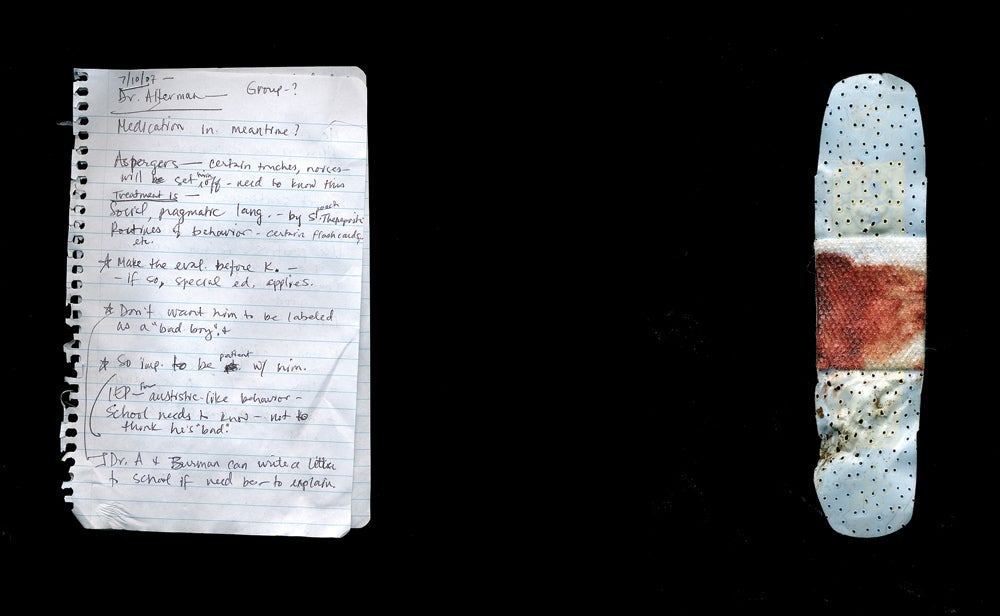 7/10/07 —
Dr. Alterman — Group - ?
Medication in meantime?
Aspergers — certain touches, noises —
will be set him off - need to know this
Treatment is —
Social, pragmatic lang. - by Speech Therapists
Routines of behavior - certain flashcards,
etc.
* Make the eval. before K. —
- if so, special ed. applies.
* Don't want him to be labeled
as a "bad boy".
* So imp. to be patient w/ him.
IEP - for austistic-like behavior -
School needs to know - not to
think he's "bad."
Dr. A & Burman can write a letter
to school if need be - to explain.